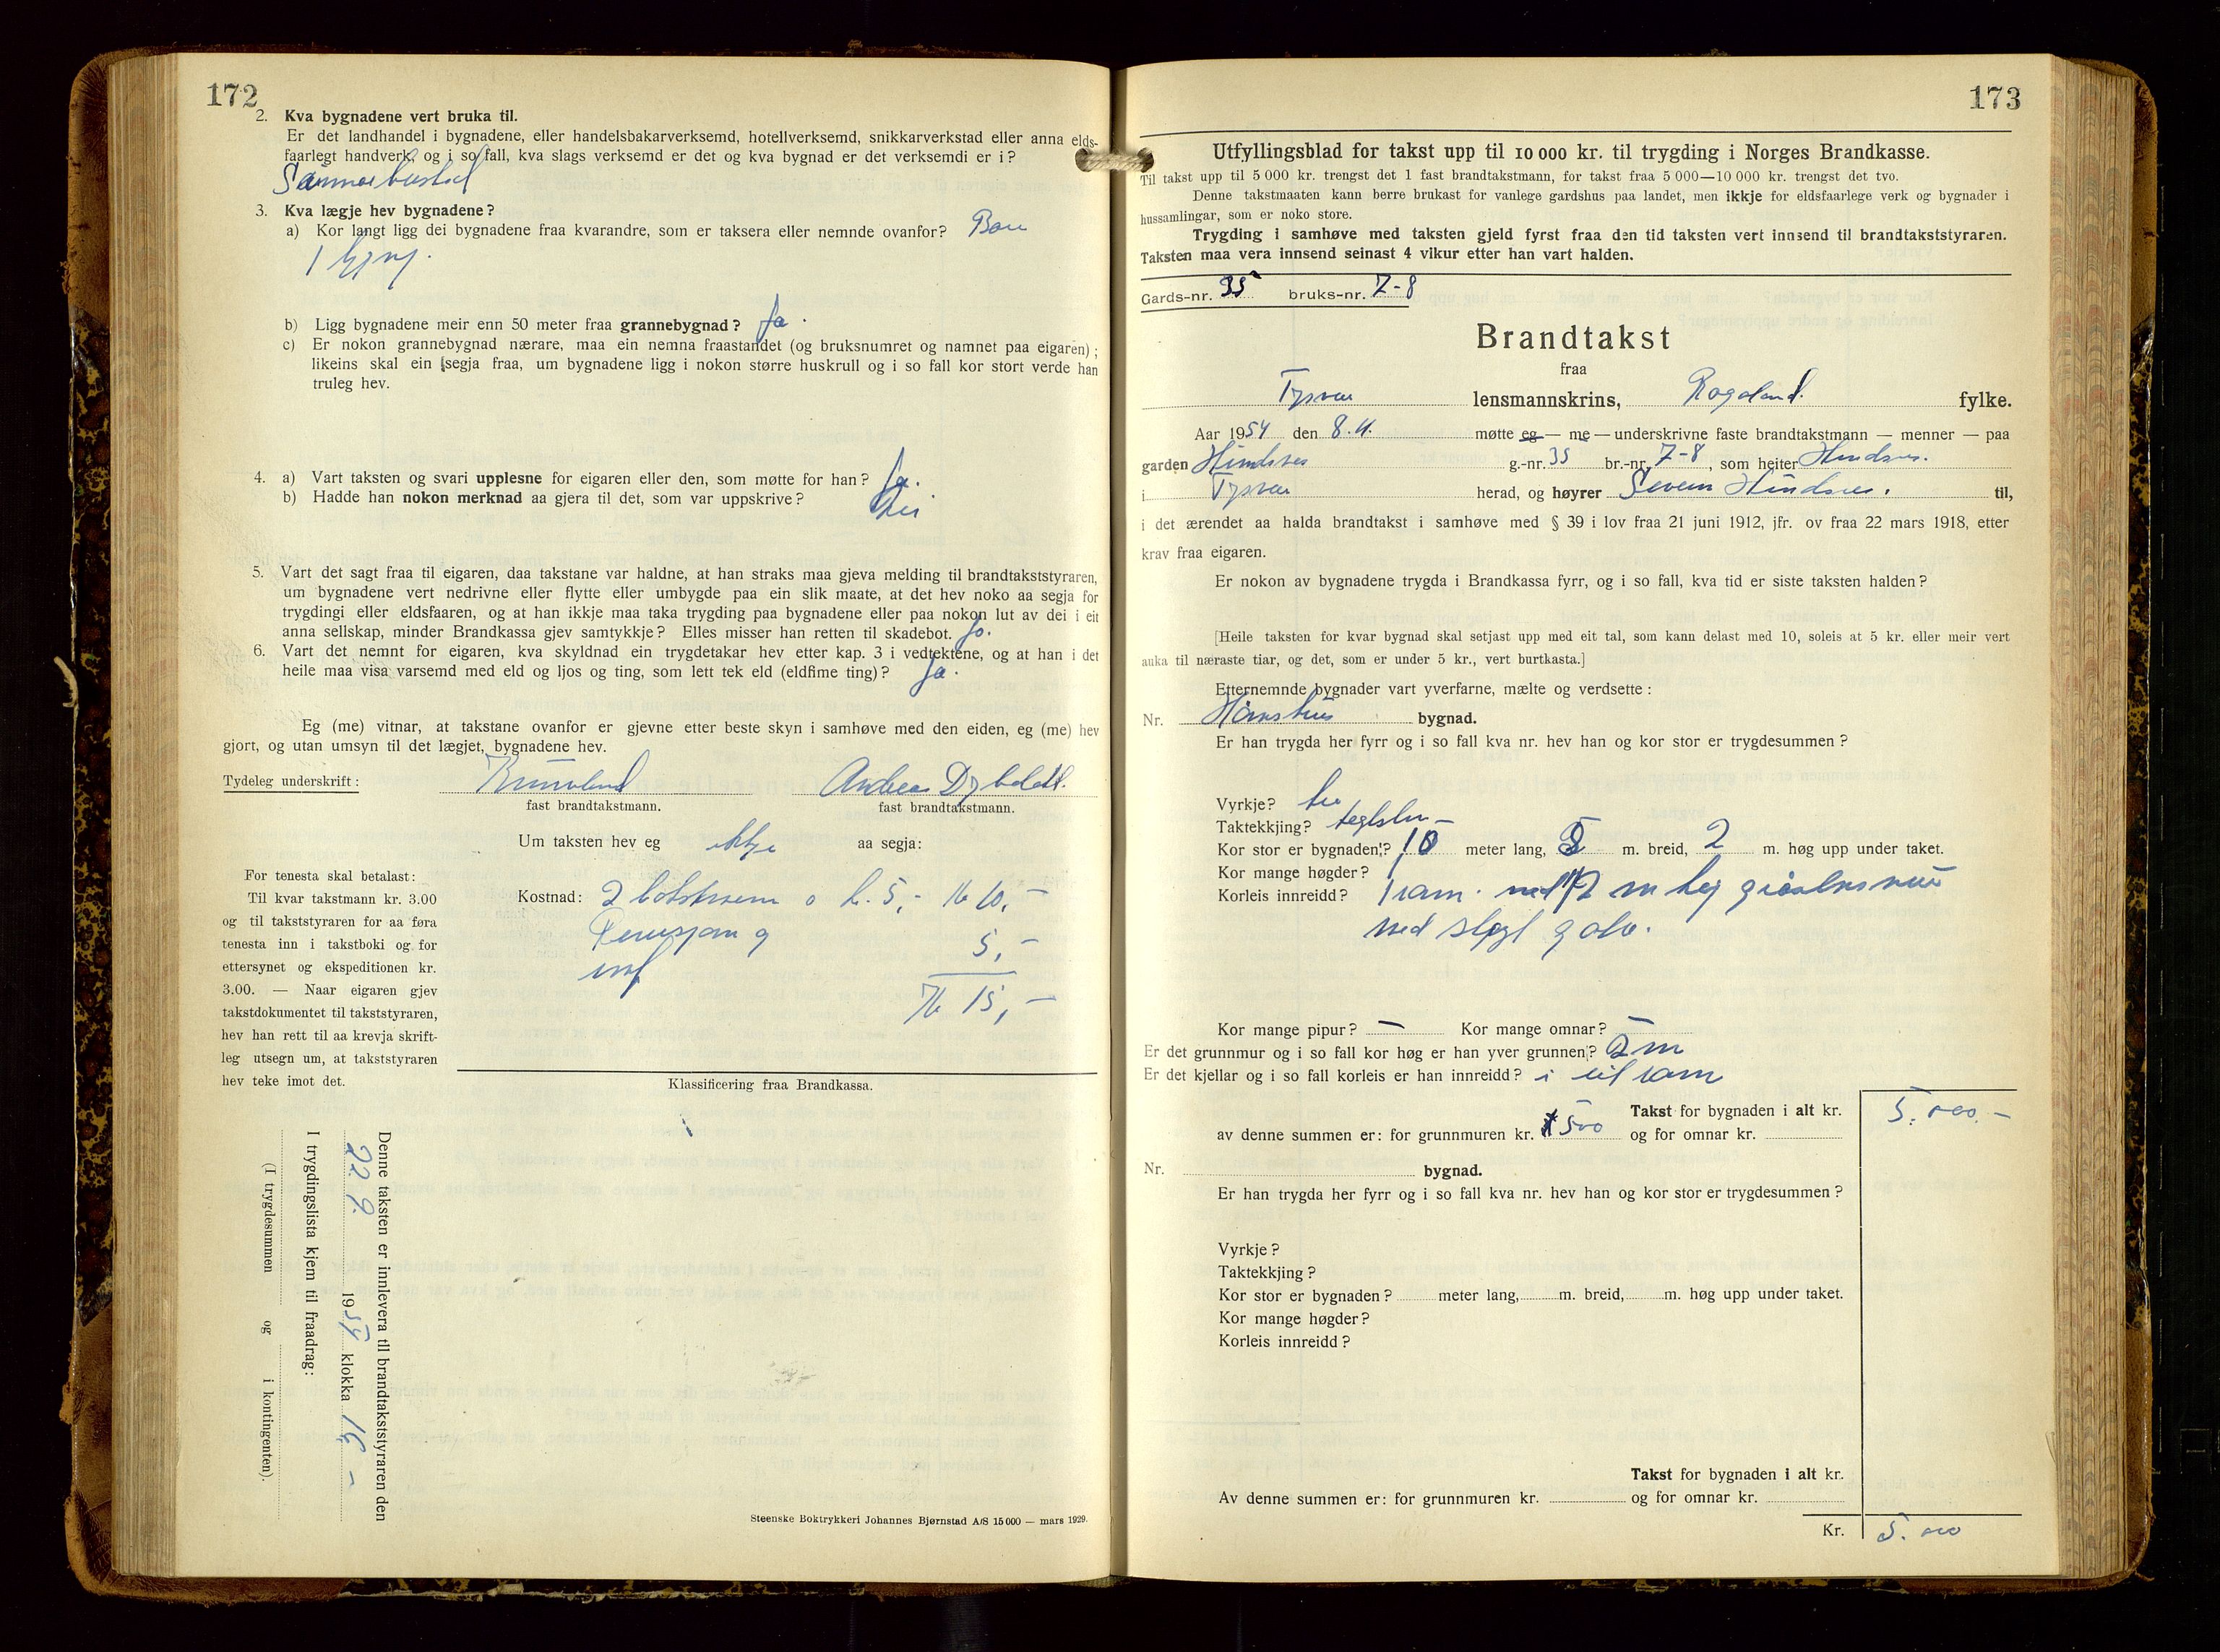 172
2. Kva bygnadene vert bruka til.
Er det landhandel i bygnadene, eller handelsbakarverksemd, hotellverksemd, snikkarverkstad eller anna elds-
faarlegt handverk, og i so fall, kva slags verksemd er det og kva bygnad er det verksemdi er i?
3. Kva lægje hev bygnadene?
a) Kor langt ligg dei bygnadene fraa kvarandre, som er taksera eller nemnde ovanfor? Bare
1 bygn.
b) Ligg bygnadene meir enn 50 meter fraa grannebygnad? Ja.
c) Er nokon grannebygnad nærare, maa ein nemna fraastandet (og bruksnumret og namnet paa eigaren);
likeins skal ein segja fraa, um bygnadene ligg i nokon større huskrull og i so fall kor stort verde han
truleg hev.
4. a) Vart taksten og svari upplesne for eigaren eller den, som møtte for han? Ja.
b) Hadde han nokon merknad aa gjera til det, som var uppskrive? Nei
5. Vart det sagt fraa til eigaren, daa takstane var haldne, at han straks maa gjeva melding til brandtakststyraren,
um bygnadene vert nedrivne eller flytte eller umbygde paa ein slik maate, at det hev noko aa segja for
trygdingi eller eldsfaaren, og at han ikkje maa taka trygding paa bygnadene eller paa nokon lut av dei i eit
anna sellskap, minder Brandkassa gjev samtykkje? Elles misser han retten til skadebot. Ja.
6. Vart det nemnt for eigaren, kva skyldnad ein trygdetakar hev etter kap. 3 i vedtektene, og at han i det
heile maa visa varsemd med eld og ljos og ting, som lett tek eld (eldfime ting)? Ja.
Eg (me) vitnar, at takstane ovanfor er gjevne etter beste skyn i samhøve med den eiden, eg (me) hev
gjort, og utan umsyn til det lægjet, bygnadene hev.
Tydeleg underskrift: Andreas
fast brandtakstmann. fast brandtakstmann.
Um taksten hev eg ikkje aa segja:
For tenesta skal betalast:
Til kvar takstmann kr. 3.00
og til takststyraren for aa føra
tenesta inn i takstboki og for
ettersynet og ekspeditionen kr.
3.00. — Naar eigaren gjev
takstdokumentet til takststyraren,
hev han rett til aa krevja skrift-
leg utsegn um, at takststyraren
hev teke imot det.
Kostnad: 2 5,- kr 10,-
5,-
kr 15,-
Klassificering fraa Brandkassa.
Denne taksten er innlevera til brandtakststyraren den
22 9. 1954 klokka 16 -
I trygdingslista kjem til fraadrag:
(I trygdesummen og i kontingenten).
Steenske Boktrykkeri Johannes Bjørnstad A/S 15 000 — mars 1929.
173
Utfyllingsblad for takst upp til 10 000 kr. til trygding i Norges Brandkasse.
Til takst upp til 5 000 kr. trengst det 1 fast brandtakstmann, for takst fraa 5 000—10 000 kr. trengst det tvo.
Denne takstmaaten kann berre brukast for vanlege gardshus paa landet, men ikkje for eldsfaarlege verk og bygnader i
hussamlingar, som er noko store.
Trygding i samhøve med taksten gjeld fyrst fraa den tid taksten vert innsend til brandtakststyraren.
Taksten maa vera innsend seinast 4 vikur etter han vart halden.
Gards-nr. 35 bruks-nr. 7-8
Brandtakst
fraa
Tysvær lensmannskrins, Rogaland fylke.
Aar 1954 den møtte eg — me — underskrivne faste brandtakstmann — menner — paa
garden Hindnes g.-nr. 35 br.-nr. 7-8, som heiter Hindnes.
i Tysvær herad, og høyrer Severin Hindnes. til,
i det ærendet aa halda brandtakst i samhøve med § 39 i lov fraa 21 juni 1912, jfr. ov fraa 22 mars 1918, etter
krav fraa eigaren.
Er nokon av bygnadene trygda i Brandkassa fyrr, og i so fall, kva tid er siste taksten halden?
[Heile taksten for kvar bygnad skal setjast upp med eit tal, som kann delast med 10, soleis at 5 kr. eller meir vert
auka til næraste tiar, og det, som er under 5 kr., vert burtkasta.]
Etternemnde bygnader vart yverfarne, mælte og verdsette:
Nr. Hønshus bygnad.
Er han trygda her fyrr og i so fall kva nr. hev han og kor stor er trygdesummen?
Vyrkje? tre
Taktekkjing?
Kor stor er bygnaden? 10 meter lang, m. breid, 2 m. høg upp under taket.
Kor mange høgder? 1
Korleis innreidd? 1 rom. m høg
med støypt golv.
Kor mange pipur? — Kor mange omnar? —
Er det grunnmur og i so fall kor høg er han yver grunnen? 2 m
Er det kjellar og i so fall korleis er han innreidd? i eit rom
Takst for bygnaden i alt kr. 5.000.-
av denne summen er: for grunnmuren kr. og for omnar kr.
Nr. bygnad.
Er han trygda her fyrr og i so fall kva nr. hev han og kor stor er trygdesummen?
Vyrkje?
Taktekkjing?
Kor stor er bygnaden? meter lang, m. breid, m. høg upp under taket.
Kor mange høgder?
Korleis innreidd?
Takst for bygnaden i alt kr.
Av denne summen er: for grunnmuren kr. og for omnar kr.
Kr. 5.000